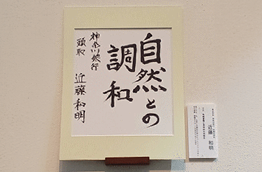 自然との
調和
神奈川銀行
頭取
近藤和明